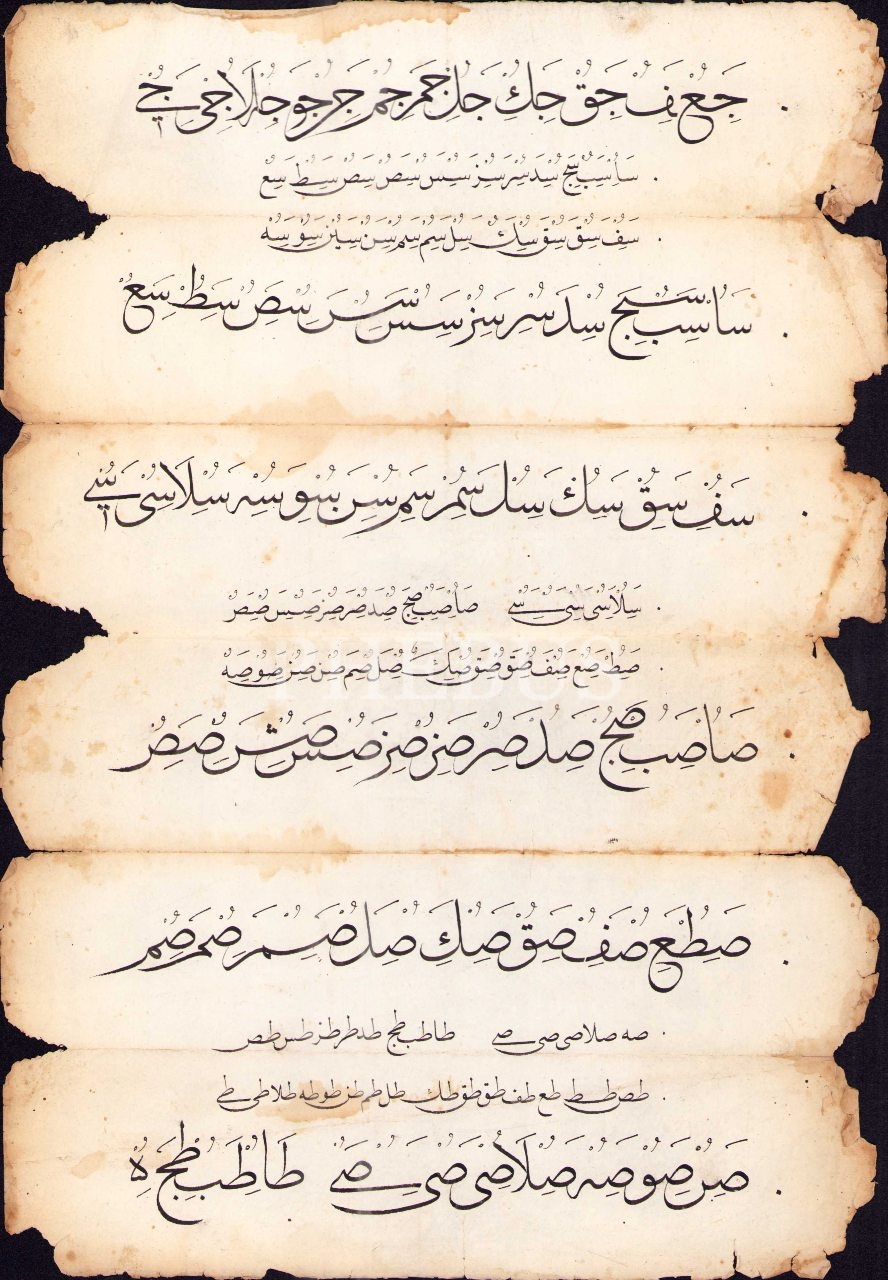 جع جف جق جك جل جم جم جن جو جه جلا جى جے
سا سب سج سد سر سز سس سص سص سط سع
سف سق سق سك سل سم سم سن سين سو سه
سا سب سج سد سر سز سس سس سص سط سع
سف سق سك سل سم سم سن سو سه سلا سى سے
سلا سى سى سے صا صب صج صد صر صز صس صص
صط صع صف صق صق صك صل صم صن صن صو صه
صا صب صج صد صر صز صز صس صس صص
صط صع صف صق صك صل صم صم صم
صه صلا صى صى صے طا طب طج طد طر طز طس طص
طص طط طع طف طق طق طك طل طم طن طو طه طلا طى طے
صن صو صه صلا صى صى صے طا طب طج ه
PHEBUS